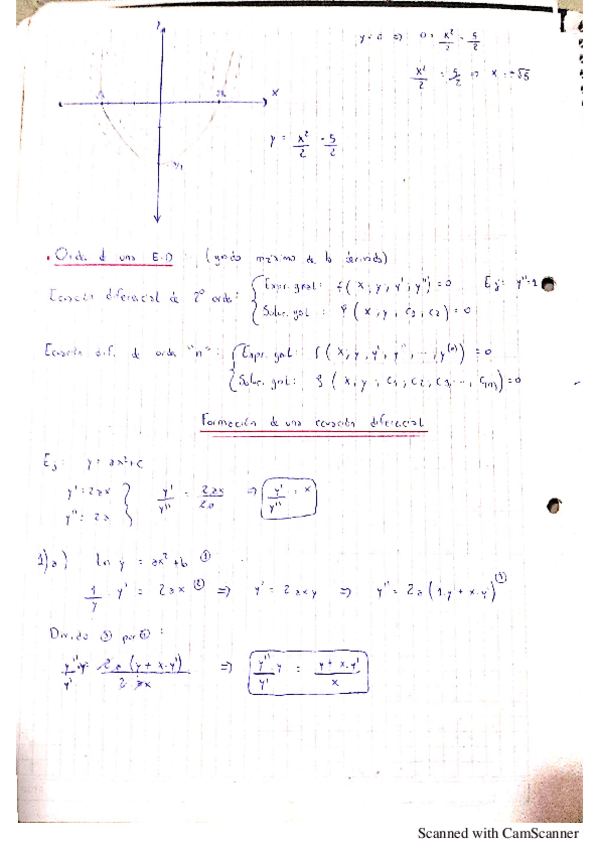 y = 0 => 0 = x²/2 - 5/2
x²/2 = 5/2 => x = ±√5
x
y = x²/2 - 5/2
• Orden de una E.D : (grado máximo de la derivada)
Ecuación diferencial de 2º orden: { Expr. gral: f(x, y, y', y'') = 0 Ej: y'' = 2
Soluc. gral:
Ecuación dif. de orden "n": { Expr. gral: f(x, y, y', y'', ..., y⁽ⁿ⁾) = 0
Soluc. gral:
Formación de una ecuación diferencial
Ej: y = ax² + c
y' = 2ax
y'' = 2a } y'/y'' = 2ax/2a => y'/y'' = x
1) a) ln y = ax² + b ①
1/y . y' = 2ax ② => y' = 2axy => y'' = 2a (1.y + x.y') ③
Divido ③ por ②:
y''.y/y' = 2a (y + x.y')/2ax => y''/y' . y = y + x.y'/x
Scanned with CamScanner